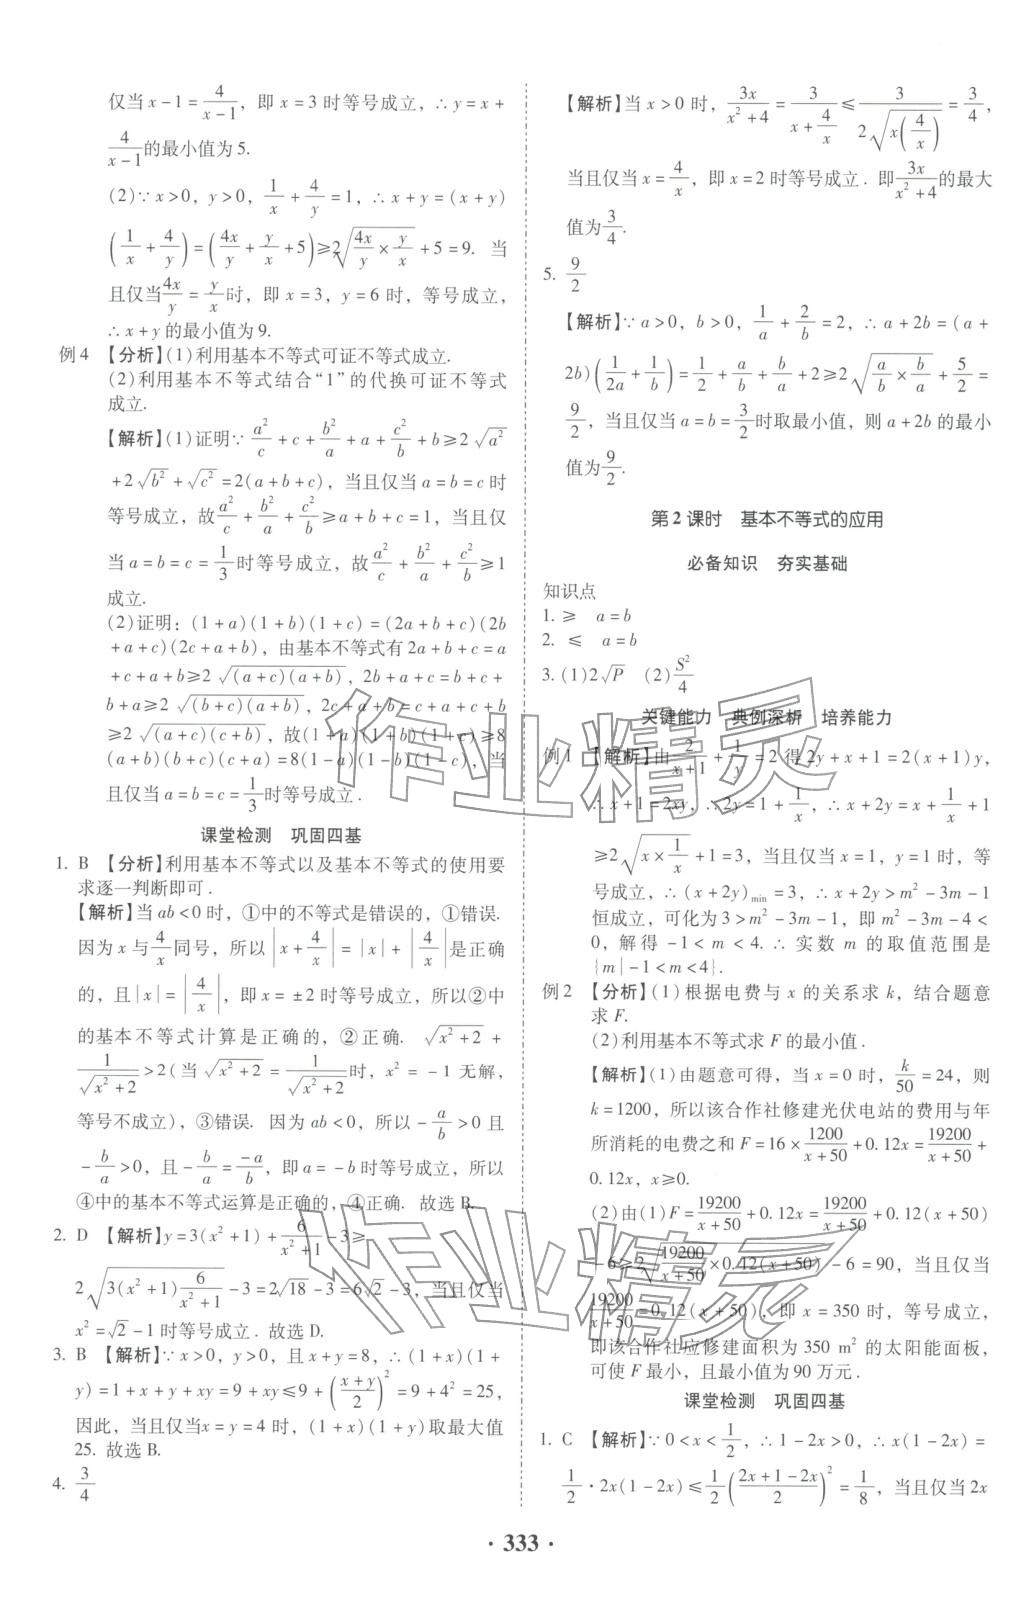 仅当 x－1＝4/(x－1)，即 x＝3 时等号成立，∴y＝x＋
4/(x－1)的最小值为 5.
(2)∵x>0，y>0，1/x＋4/y＝1，∴x＋y＝(x＋y)
(1/x＋4/y)＝(4x/y＋y/x＋5)≥2√(4x/y×y/x)＋5＝9. 当
且仅当4x/y＝y/x时，即 x＝3，y＝6 时，等号成立，
∴x＋y 的最小值为 9.
例 4 【分析】(1)利用基本不等式可证不等式成立.
(2)利用基本不等式结合“1”的代换可证不等式
成立.
【解析】(1)证明∵a²/c＋c＋b²/a＋a＋c²/b＋b≥2√a²
＋2√b²＋√c²＝2(a＋b＋c)，当且仅当 a＝b＝c 时
等号成立，故a²/c＋b²/a＋c²/b≥a＋b＋c＝1，当且仅
当 a＝b＝c＝1/3时等号成立，故a²/c＋b²/a＋c²/b≥1
成立.
(2)证明：(1＋a)(1＋b)(1＋c)＝(2a＋b＋c)(2b
＋a＋c)(2c＋a＋b)，由基本不等式有 2a＋b＋c＝a
＋c＋a＋b≥2√((a＋c)(a＋b))，2b＋a＋c＝b＋c＋
b＋a≥2√((b＋c)(a＋b))，2c＋a＋b＝c＋a＋c＋b
≥2√((a＋c)(b＋c))，故(1＋a)(1＋b)(1＋c)≥8
(a＋b)(b＋c)(c＋a)＝8(1－a)(1－b)(1－c)，当
且仅当 a＝b＝c＝1/3时等号成立.
课堂检测 巩固四基
1. B 【分析】利用基本不等式以及基本不等式的使用要
求逐一判断即可.
【解析】当 ab<0 时，①中的不等式是错误的，①错误.
因为 x 与4/x同号，所以|x＋4/x|＝|x|＋|4/x|是正确
的，且|x|＝|4/x|，即 x＝±2 时等号成立，所以②中
的基本不等式计算是正确的，②正确. √(x²＋2)＋
1/√(x²＋2)>2(当√(x²＋2)＝1/√(x²＋2)时，x²＝－1 无解，
等号不成立)，③错误. 因为 ab<0，所以－a/b>0 且
－b/a>0，且－b/a＝－a/b，即 a＝－b 时等号成立，所以
④中的基本不等式运算是正确的，④正确. 故选 B.
2. D 【解析】y＝3(x²＋1)＋6/(x²＋1)－3≥
2√(3(x²＋1)6/(x²＋1))－3＝2√18－3＝6√2－3，当且仅当
x²＝√2－1 时等号成立. 故选 D.
3. B 【解析】∵x>0，y>0，且 x＋y＝8，∴(1＋x)(1＋
y)＝1＋x＋y＋xy＝9＋xy≤9＋((x＋y)/2)²＝9＋4²＝25，
因此，当且仅当 x＝y＝4 时，(1＋x)(1＋y)取最大值
25. 故选 B.
4. 3/4
【解析】当 x>0 时，3x/(x²＋4)＝3/(x＋4/x)≤3/(2√(x(4/x)))＝3/4，
当且仅当 x＝4/x，即 x＝2 时等号成立. 即3x/(x²＋4)的最大
值为3/4.
5. 9/2
【解析】∵a>0，b>0，1/a＋2/b＝2，∴a＋2b＝(a＋
2b)(1/2a＋1/b)＝1/2＋a/b＋b/a＋2≥2√(a/b×b/a)＋5/2＝
9/2，当且仅当 a＝b＝3/2时取最小值，则 a＋2b 的最小
值为9/2.
第 2 课时 基本不等式的应用
必备知识 夯实基础
知识点
1. ≥ a＝b
2. ≤ a＝b
3. (1)2√P (2)S²/4
关键能力 典例深析 培养能力
例 1 【解析】由2/(x＋1)＋1/y＝2 得 2y＋x＋1＝2(x＋1)y，
∴x＋1＝2xy，∴2y＝1＋1/x，∴x＋2y＝x＋1/x＋1
≥2√(x×1/x)＋1＝3，当且仅当 x＝1/x，即 x＝1 时，等
号成立，∴(x＋2y)min＝3，∴x＋2y>m²－3m－1
恒成立，可化为 3>m²－3m－1，即 m²－3m－4<
0，解得－1<m<4. ∴实数 m 的取值范围是
{m|－1<m<4}.
例 2 【分析】(1)根据电费与 x 的关系求 k，结合题意
求 F.
(2)利用基本不等式求 F 的最小值.
【解析】(1)由题意可得，当 x＝0 时，k/50＝24，则
k＝1200，所以该合作社修建光伏电站的费用与年
所消耗的电费之和 F＝16×1200/(x＋50)＋0.12x＝19200/(x＋50)＋
0.12x，x≥0.
(2)由(1)F＝19200/(x＋50)＋0.12x＝19200/(x＋50)＋0.12(x＋50)
－6≥2√(19200/(x＋50)×0.12(x＋50))－6＝90，当且仅当
19200/(x＋50)＝0.12(x＋50)，即 x＝350 时，等号成立，
即该合作社应修建面积为 350 m²的太阳能面板，
可使 F 最小，且最小值为 90 万元.
课堂检测 巩固四基
1. C 【解析】∵0<x<1/2，∴1－2x>0，∴x(1－2x)＝
1/2·2x(1－2x)≤1/2((2x＋1－2x)/2)²＝1/8，当且仅当 2x
· 333 ·
作业精灵
作业精灵